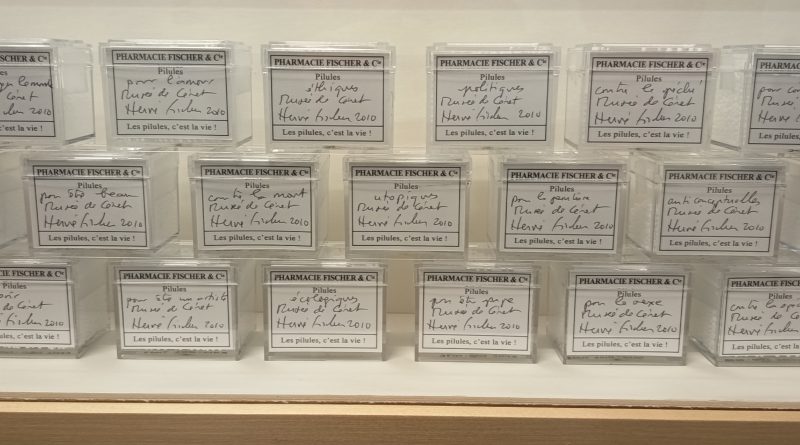 PHARMACIE FISCHER & Cie
Pilules
Musée de Céret
Hervé Fischer 2010
Les pilules, c'est la vie !
PHARMACIE FISCHER & Cie
Pilules
pour l'amour
Musée de Céret
Hervé Fischer 2010
Les pilules, c'est la vie !
PHARMACIE FISCHER & Cie
Pilules
éthiques
Musée de Céret
Hervé Fischer 2010
Les pilules, c'est la vie !
PHARMACIE FISCHER & Cie
Pilules
politiques
Musée de Céret
Hervé Fischer 2010
Les pilules, c'est la vie !
PHARMACIE FISCHER & Cie
Pilules
contre le péché
Musée de Céret
Hervé Fischer 2010
Les pilules, c'est la vie !
PHARMACIE FISCH
Pilules
Musée de Cé
Hervé Fisch
Les pilules, c'est la
PHARMACIE FISCHER & Cie
Pilules
pour être beau
Musée de Céret
Hervé Fischer 2010
Les pilules, c'est la vie !
PHARMACIE FISCHER & Cie
Pilules
contre la mort
Musée de Céret
Hervé Fischer 2010
Les pilules, c'est la vie !
PHARMACIE FISCHER & Cie
Pilules
utopiques
Musée de Céret
Hervé Fischer 2010
Les pilules, c'est la vie !
PHARMACIE FISCHER & Cie
Pilules
pour la peinture
Musée de Céret
Hervé Fischer 2010
Les pilules, c'est la vie !
PHARMACIE FISCHER & Cie
Pilules
anticonceptuelles
Musée de Céret
Hervé Fischer 2010
Les pilules, c'est la vie !
FISCHER & Cie
Pilules
de Céret
Fischer 2010
c'est la vie !
PHARMACIE FISCHER & Cie
Pilules
pour être un artiste
Musée de Céret
Hervé Fischer 2010
Les pilules, c'est la vie !
PHARMACIE FISCHER & Cie
Pilules
écologiques
Musée de Céret
Hervé Fischer 2010
Les pilules, c'est la vie !
PHARMACIE FISCHER & Cie
Pilules
pour être pape
Musée de Céret
Hervé Fischer 2010
Les pilules, c'est la vie !
PHARMACIE FISCHER & Cie
Pilules
pour le sexe
Musée de Céret
Hervé Fischer 2010
Les pilules, c'est la vie !
PHARMACIE FISCHER
Pilules
contre la
Musée de Céret
Hervé Fischer
Les pilules, c'est la vie